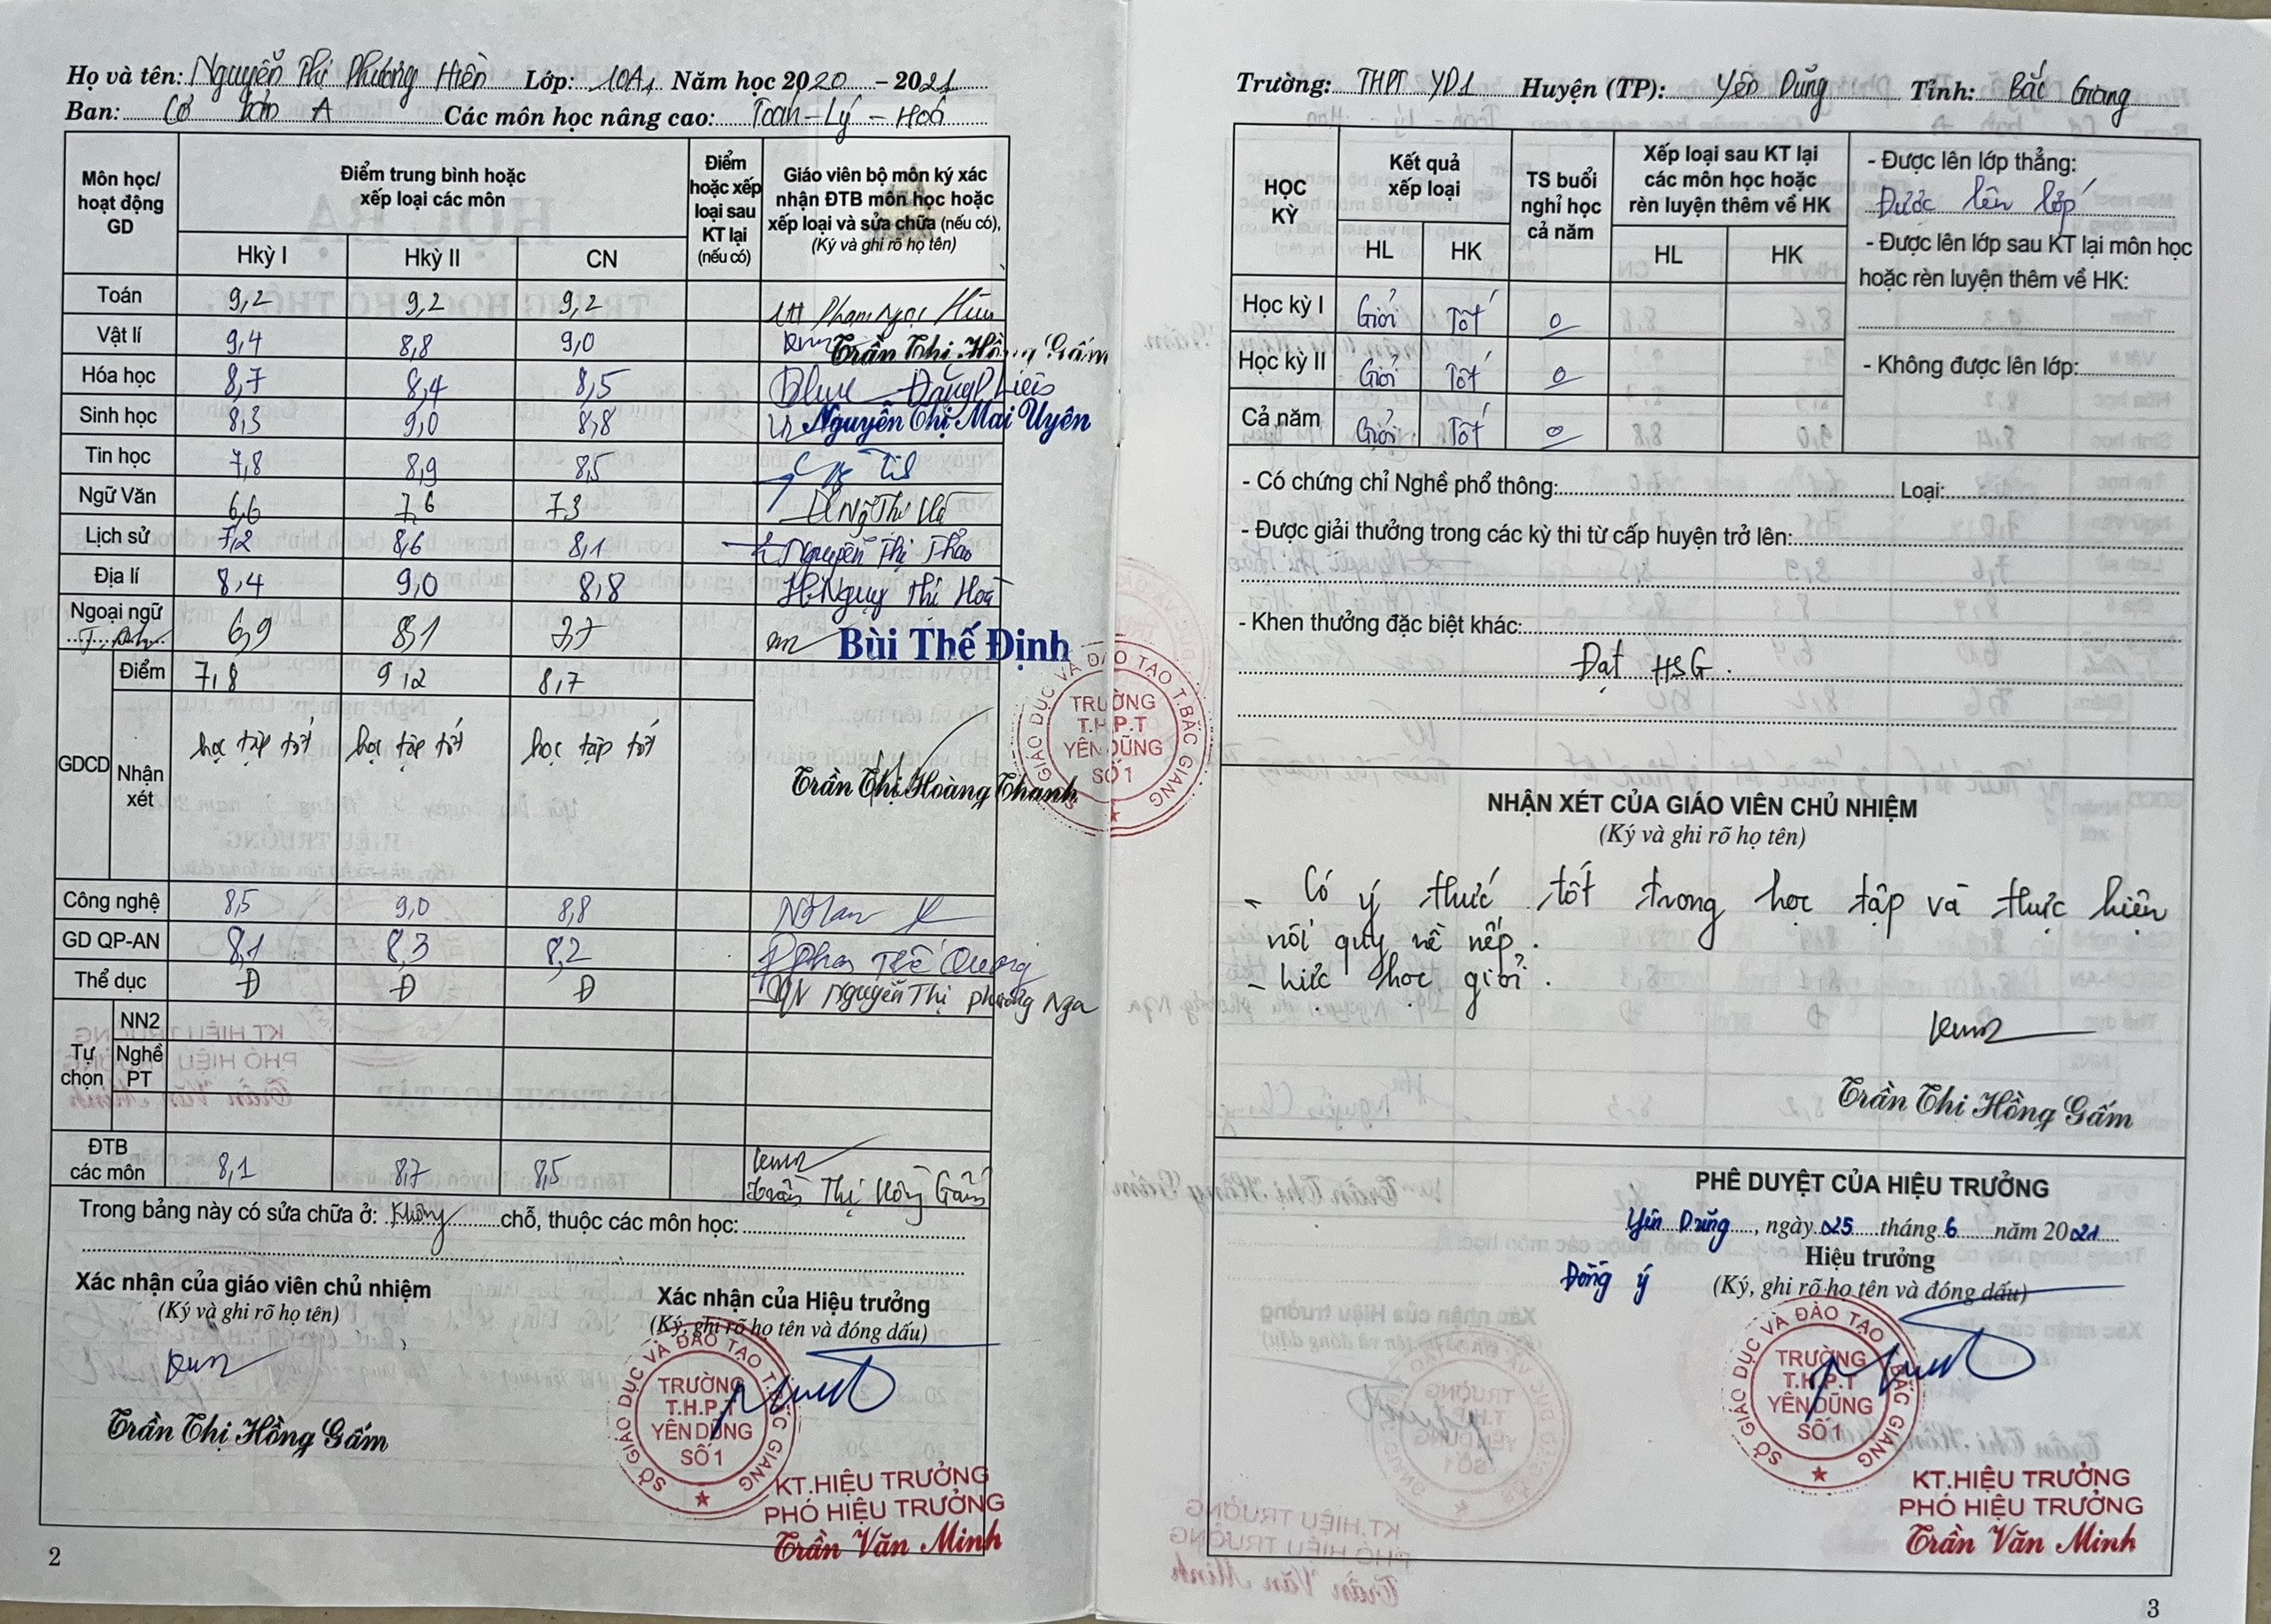 Họ và tên: Nguyễn Thị Phương Hiền Lớp: 10A1 Năm học 2020 - 2021
Ban: Cơ bản A Các môn học nâng cao: Toán - Lý - Hoá
Môn học/ hoạt động GD
Điểm trung bình hoặc xếp loại các môn
Điểm hoặc xếp loại sau KT lại (nếu có)
Giáo viên bộ môn ký xác nhận ĐTB môn học hoặc xếp loại và sửa chữa (nếu có), (Ký và ghi rõ họ tên)
Hkỳ I Hkỳ II CN
Toán 9,2 9,2 9,2 Phạm Ngọc
Vật lí 9,4 8,8 9,0 Trần Thị Hồng Gấm
Hóa học 8,7 8,4 8,5
Sinh học 8,3 9,0 8,8 Nguyễn Thị Mai Uyên
Tin học 7,8 8,9 8,5
Ngữ Văn 6,6 7,6 7,3
Lịch sử 7,2 8,6 8,1 Nguyễn Thị Thảo
Địa lí 8,4 9,0 8,8 Thị Hoà
Ngoại ngữ 6,9 8,1 7,7 Bùi Thế Định
T. Anh
GDCD
Điểm 7,8 9,2 8,7
Nhận xét học tập tốt học tập tốt học tập tốt
Trần Thị Hoàng Thanh
Công nghệ 8,5 9,0 8,8
GD QP-AN 8,1 8,3 8,2
Thể dục Đ Đ Đ Nguyễn Thị Phương Nga
Tự chọn
NN2
Nghề PT
ĐTB các môn 8,1 8,7 8,5 Trần Thị Hồng Gấm
Trong bảng này có sửa chữa ở: Không chỗ, thuộc các môn học:
Xác nhận của giáo viên chủ nhiệm
(Ký và ghi rõ họ tên)
Trần Thị Hồng Gấm
Xác nhận của Hiệu trưởng
(Ký, ghi rõ họ tên và đóng dấu)
SỞ GIÁO DỤC VÀ ĐÀO TẠO T.BẮC GIANG
TRƯỜNG
T.H.P.T
YÊN DŨNG
SỐ 1
KT.HIỆU TRƯỞNG
PHÓ HIỆU TRƯỞNG
Trần Văn Minh
2
Trường: THPT YD1 Huyện (TP): Yên Dũng Tỉnh: Bắc Giang
HỌC KỲ
Kết quả xếp loại
TS buổi nghỉ học cả năm
Xếp loại sau KT lại các môn học hoặc rèn luyện thêm về HK
HL HK HL HK
Học kỳ I Giỏi Tốt 0
Học kỳ II Giỏi Tốt 0
Cả năm Giỏi Tốt 0
- Được lên lớp thẳng:
Được lên lớp
- Được lên lớp sau KT lại môn học
hoặc rèn luyện thêm về HK:
- Không được lên lớp:
- Có chứng chỉ Nghề phổ thông: Loại:
- Được giải thưởng trong các kỳ thi từ cấp huyện trở lên:
- Khen thưởng đặc biệt khác:
Đạt HSG.
NHẬN XÉT CỦA GIÁO VIÊN CHỦ NHIỆM
(Ký và ghi rõ họ tên)
- Có ý thức tốt trong học tập và thực hiện
nội quy nề nếp.
- Lực học giỏi.
Trần Thị Hồng Gấm
PHÊ DUYỆT CỦA HIỆU TRƯỞNG
Yên Dũng, ngày 25 tháng 6 năm 2021
Hiệu trưởng
Đồng ý
(Ký, ghi rõ họ tên và đóng dấu)
SỞ GIÁO DỤC VÀ ĐÀO TẠO BẮC GIANG
TRƯỜNG
T.H.P.T
YÊN DŨNG
SỐ 1
KT.HIỆU TRƯỞNG
PHÓ HIỆU TRƯỞNG
Trần Văn Minh
3
SỞ GIÁO DỤC VÀ ĐÀO TẠO T.BẮC GIANG
TRƯỜNG
T.H.P.T
YÊN DŨNG
SỐ 1